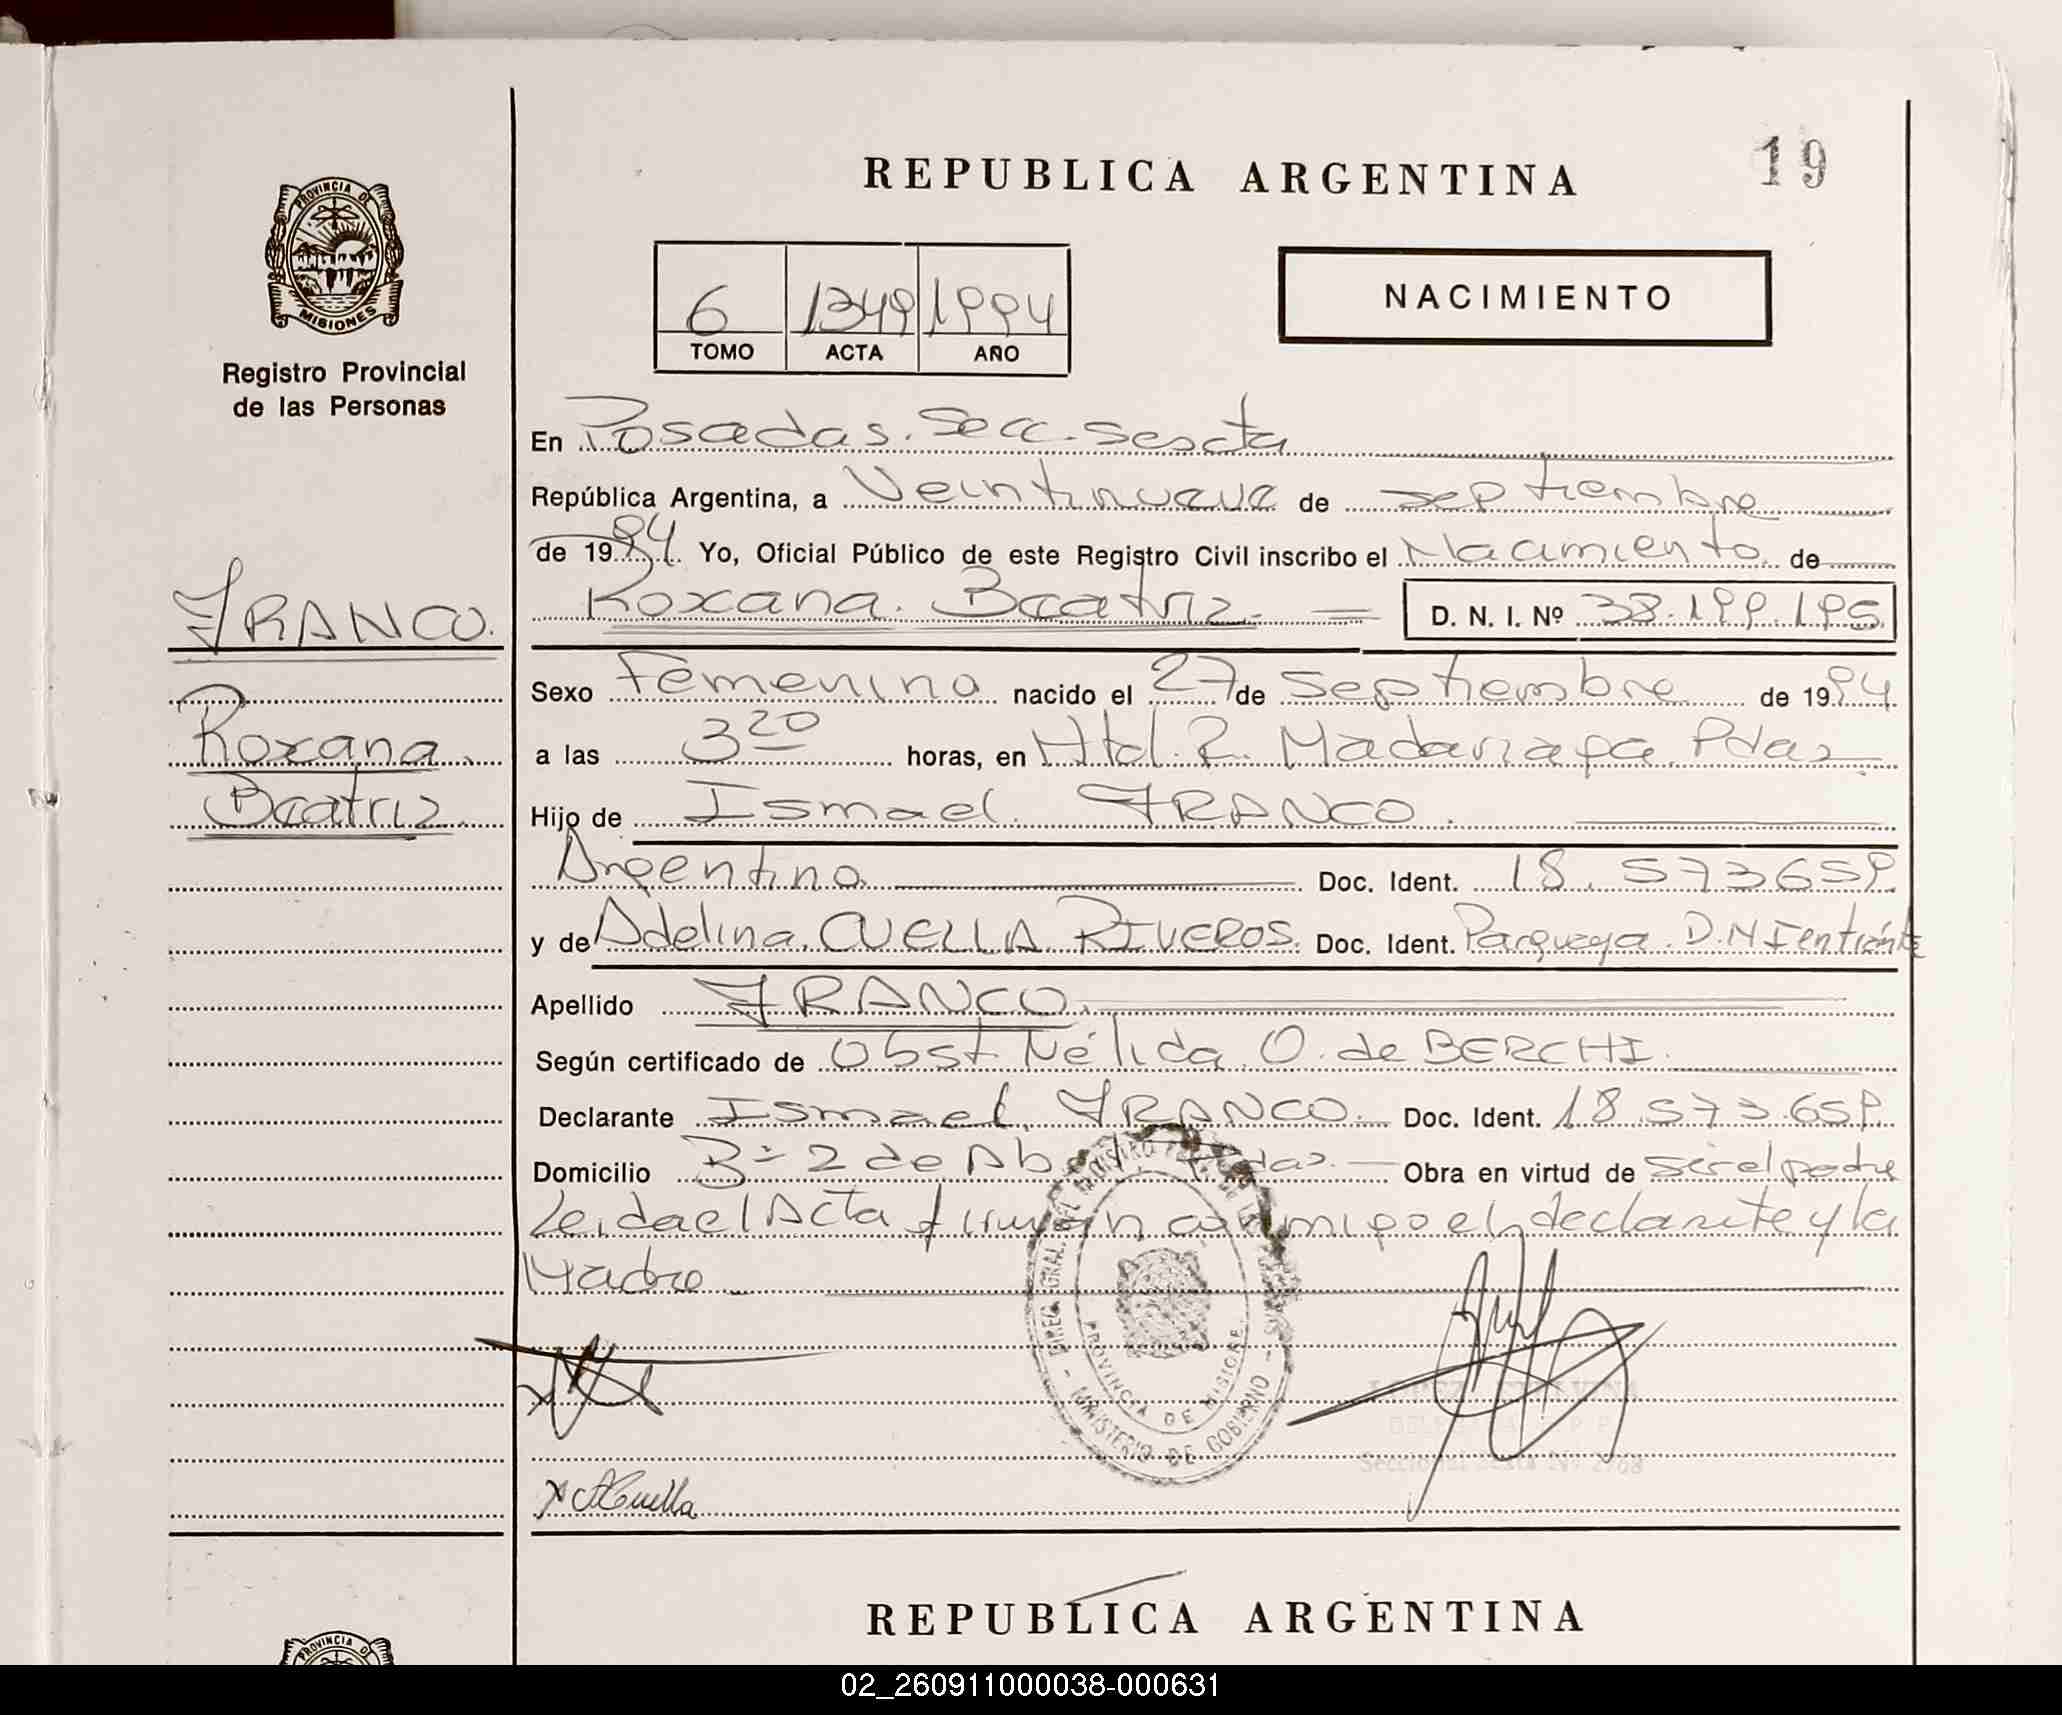 REPUBLICA ARGENTINA
19
PROVINCIA DE
MISIONES
Registro Provincial
de las Personas
6 1349 1994
TOMO ACTA AÑO
NACIMIENTO
En Posadas. Secc. Sescta
República Argentina, a Veintinueve de septiembre
de 1994. Yo, Oficial Público de este Registro Civil inscribo el Nacimiento de
Roxana. Beatriz. D. N. I. Nº 38.199.195
FRANCO.
Roxana
Beatriz.
Sexo Femenino nacido el 27 de Septiembre de 1994
a las 3 20 horas, en Htal. R. Madariaga. Pdas
Hijo de Ismael. FRANCO.
Argentino Doc. Ident. 18.573659
y de Adelina. CUELLA RIVEROS. Doc. Ident. Paraguaya. D.N.I en trámite
Apellido FRANCO.
Según certificado de Obst. Nélida. O. de BERCHI.
Declarante Ismael. FRANCO. Doc. Ident. 18.573.659.
Domicilio Bº 2 de Abril Pdas. Obra en virtud de ser el padre
Leida el Acta firman conmigo el declarante y la
Madre
DIREC. GRAL. DEL REGISTRO
MINISTERIO DE GOBIERNO
PROVINCIA DE MISIONES
Seccional Sexta Nº 2708
x ACuella
REPUBLICA ARGENTINA
PROVINCIA DE
02_260911000038-000631